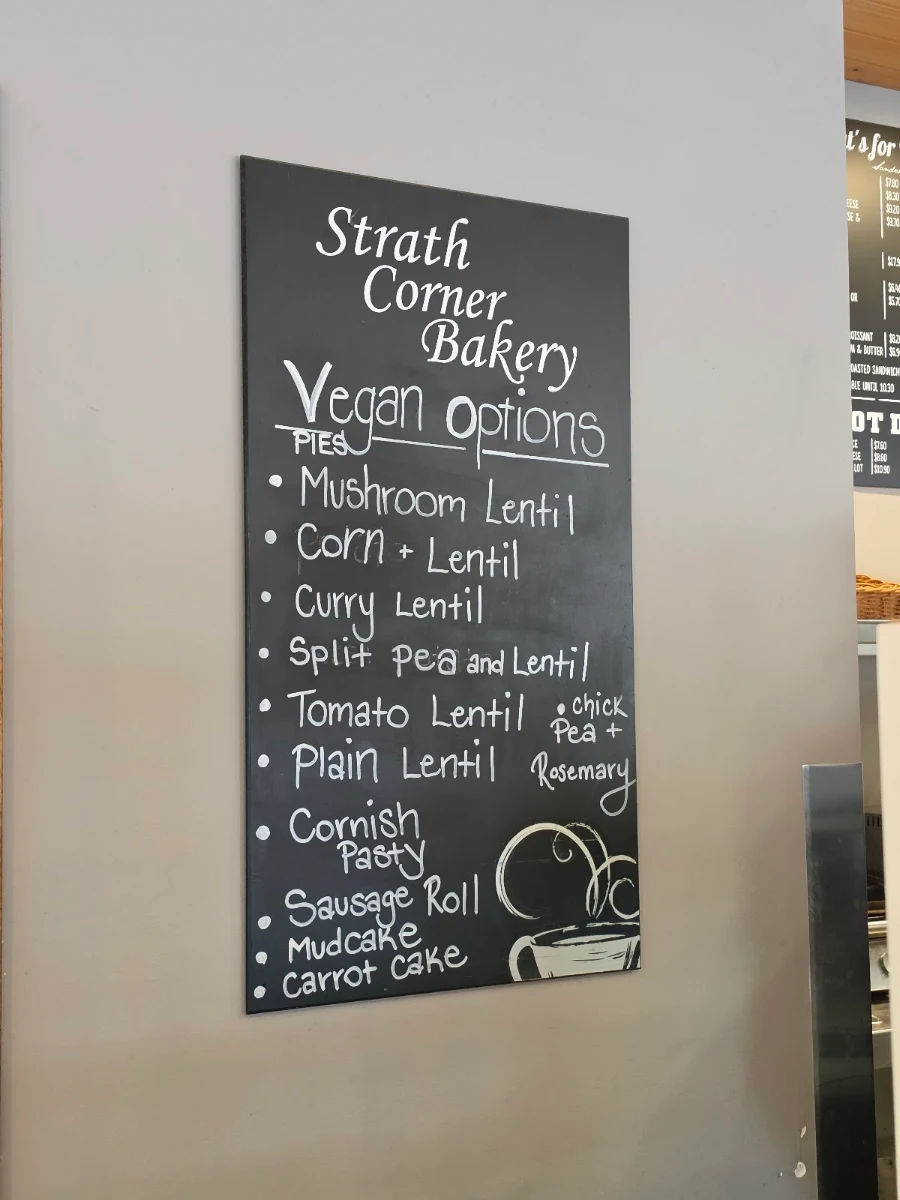 Strath
Corner
Bakery
Vegan Options
PIES
• Mushroom Lentil
• Corn + Lentil
• Curry Lentil
• Split Pea and Lentil
• Tomato Lentil
• Plain Lentil
• chick
Pea +
Rosemary
• Cornish
Pasty
• Sausage Roll
• Mudcake
• Carrot Cake
t's for
$7.90
$8.30
$9.20
$9.70
SE &
OR
& BUTTER
BLE UNTIL 10:30
OT D
$7.60
$8.60
LOT $10.90